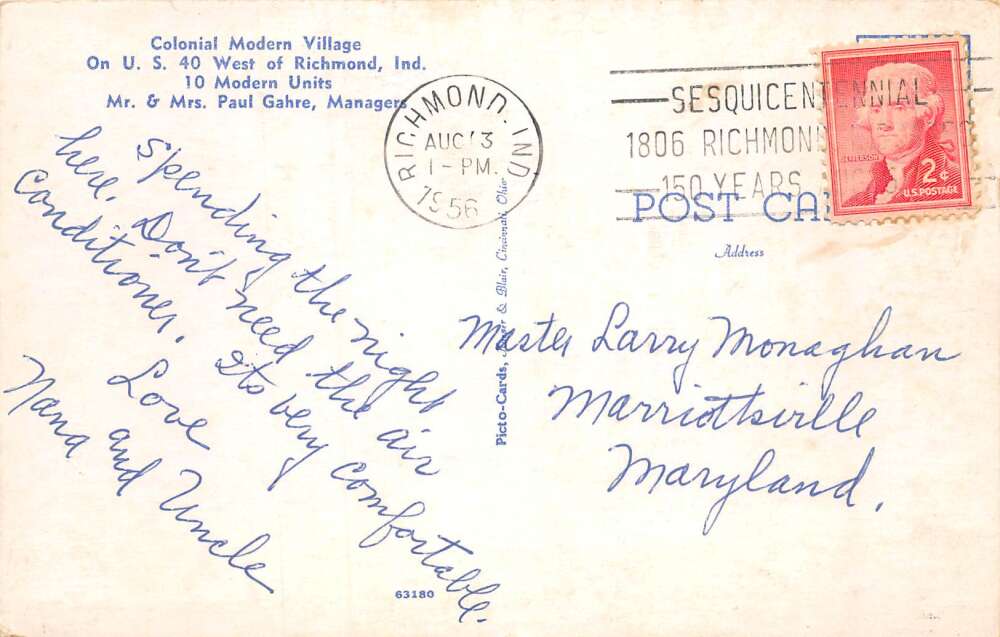 Colonial Modern Village
On U. S. 40 West of Richmond, Ind.
10 Modern Units
Mr. & Mrs. Paul Gahre, Managers
RICHMOND. IND
AUG 13
1-PM
1956
SESQUICENTENNIAL
1806 RICHMON
150 YEARS
JEFFERSON
2¢
U.S. POSTAGE
POST CA
Address
Spending the night
here. Don't need the air
conditioner. Its very comfortable.
Love
Nana and Uncle
Picto-Cards, & Blair, Cincinnati, Ohio
Master Larry Monaghan
Marriottsville
Maryland.
63180